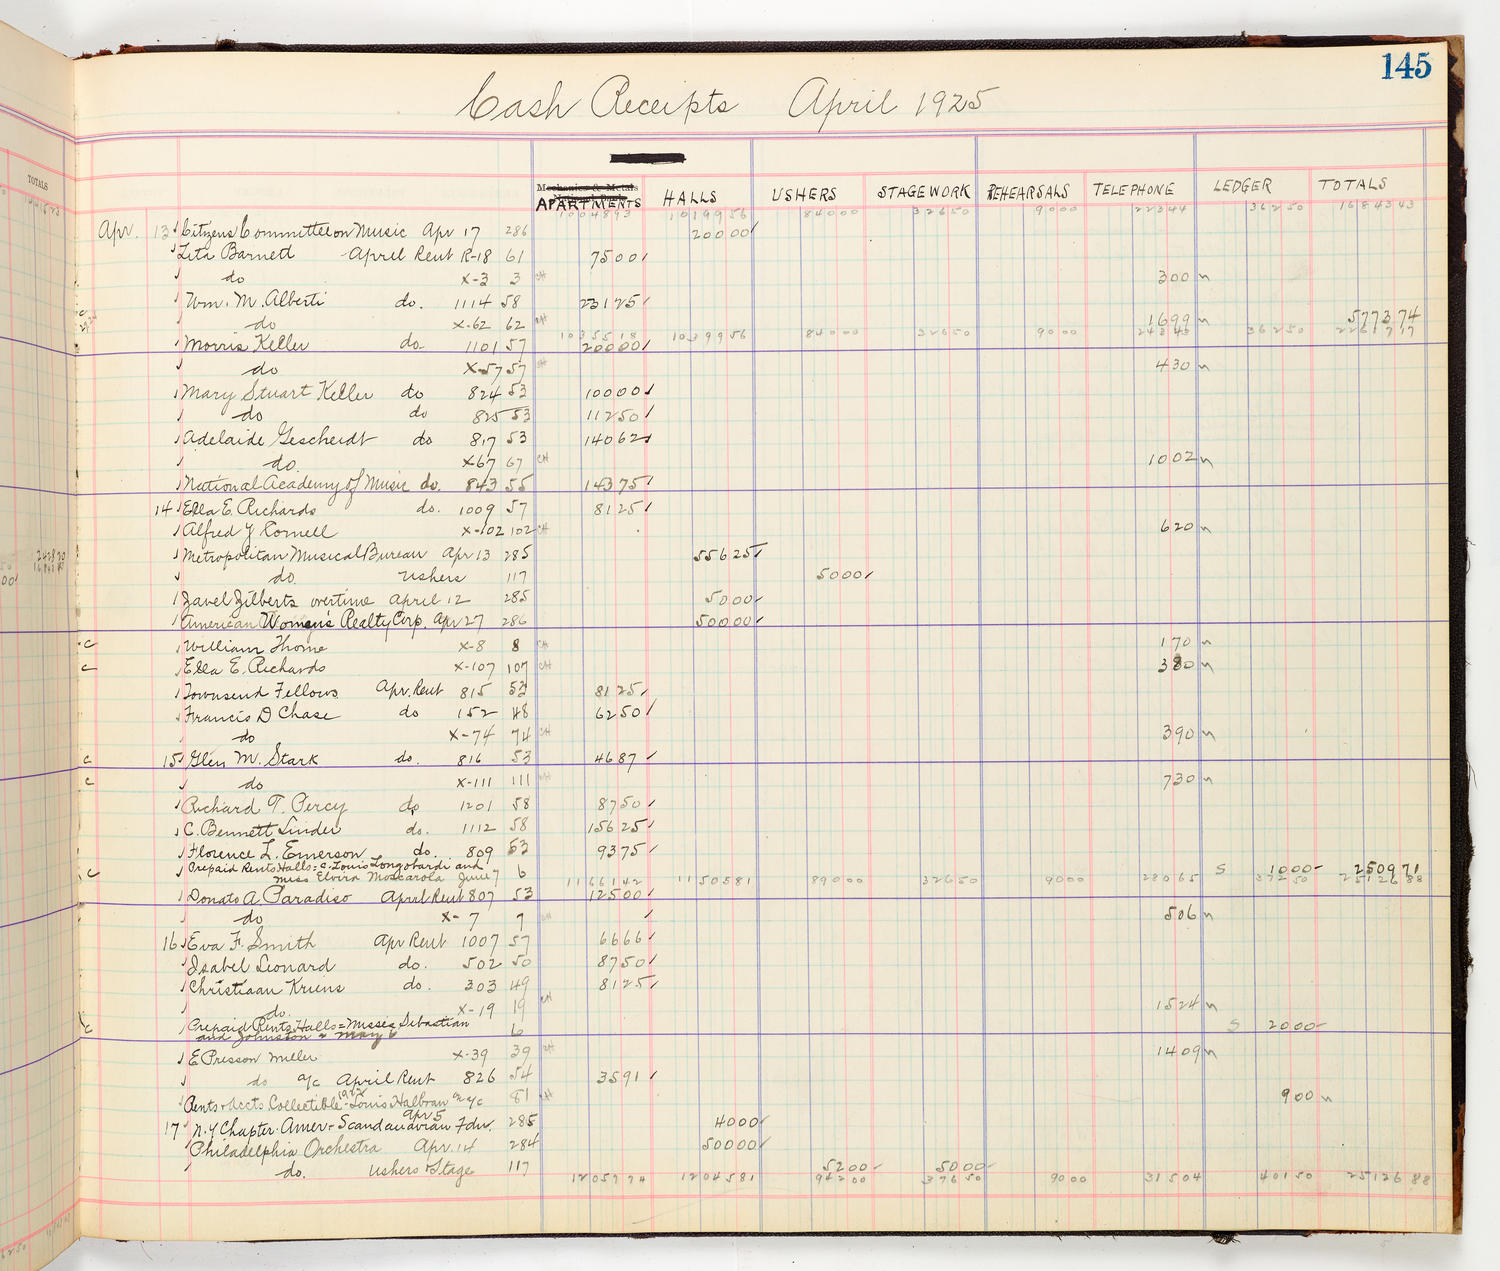 145
Cash Receipts April 1925
TOTALS
Mechanics & Metals
National Bank
APARTMENTS HALLS USHERS STAGEWORK REHEARSALS TELEPHONE LEDGER TOTALS
1004893 1019956 84000 32650 9000 22344 36250 1684343
Apr. 13 Citizens Committee on Music Apr 17 286 20000
Leta Barnett April Rent R-18 61 7500
do X-3 3 CH 300
Wm. M. Alberti do. 1114 58 23125
do X-62 62 CH 1699 577374
1035518 1039956 84000 32650 9000 24343 36250 2261717
Morris Keller do 1101 57 20000
do X-57 57 CH 430
Mary Stuart Keller do 824 53 10000
do do 825 53 11250
Adelaide Gescheidt do 817 53 14062
do. X-67 67 CH 1002
National Academy of Music do. 843 55 14375
14 Ella E. Richards do. 1009 57 8125
Alfred Y Cornell X-102 102 CH 620
Metropolitan Musical Bureau Apr 13 285 55625
do. Ushers 117 5000
Javel Zilberts overtime April 12 285 5000
American Women's Realty Corp. Apr 27 286 50000
c William Thorne X-8 8 CH 170
c Ella E. Richards X-107 107 CH 380
Townsend Fellows Apr. Rent 815 53 8125
Francis D Chase do 152 48 6250
do X-74 74 CH 390
c 15 Glen M. Stark do. 816 53 4687
c do X-111 111 CH 730
Richard T. Percy do 1201 58 8750
C. Bennett Linder do. 1112 58 15625
Florence L. Emerson do. 809 53 9375
Prepaid Rents Halls = C. Louis Longobardi and
c Miss Elvira Moscarola June 7 6 S 1000 250971
1166142 1150581 89000 32650 9000 28065 37250 2512688
Donato A Paradiso April Rent 807 53 12500
do X-7 7 CH 506
16 Eva F. Smith Apr Rent 1007 57 6666
Isabel Leonard do. 502 50 8750
Christiaan Kriens do. 303 49 8125
do. X-19 19 CH 1524
Prepaid Rents Halls = Misses Sebastian 6 S 2000
c and Johnston = May 6
E Presson Miller X-39 39 CH 1409
do a/c April Rent 826 54 3591
Rents & Accts Collectible 1922 Louis Halbran on a/c 81 CH 900
17 N.Y Chapter Amer-Scandanavian Fdn. Apr 5 285 4000
Philadelphia Orchestra Apr. 14 284 50000
do. Ushers & Stage 117 5200 5000
1205774 1204581 94200 37650 9000 31504 40150 2512688